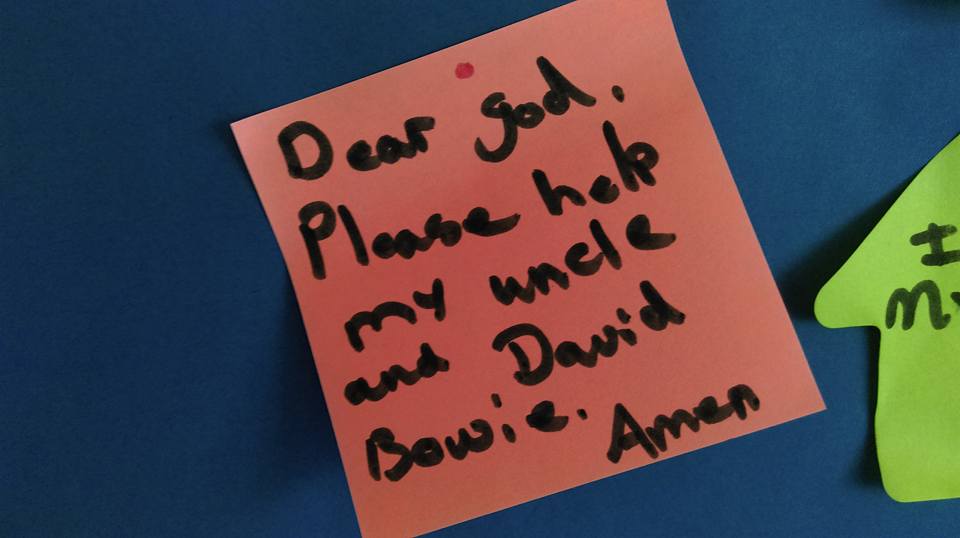 Dear God,
Please help
my uncle
and David
Bowie. Amen
I